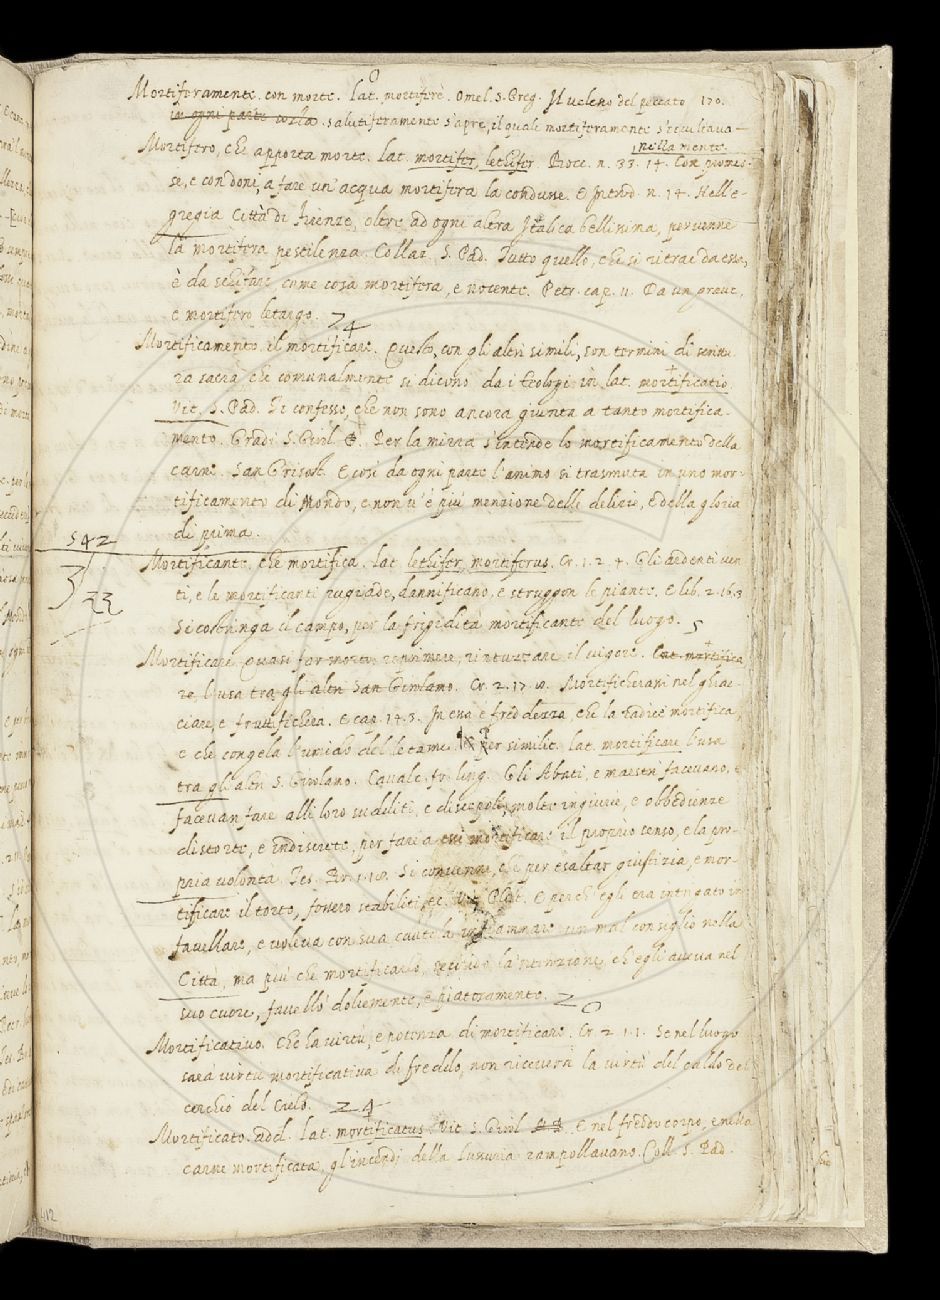 Mortiferamente. con morte. lat. mortiferè. Omel. S. Greg. Il veleno del peccato 170.
in ogni parte . salutiferamente s'apre, il quale mortiferamente s'occultava
nella mente.
Mortifero, che apporta morte. lat. mortifer, letifer. Bocc. n. 33. 14. Con promes-
se, e con doni, a fare un' acqua mortifera la condusse. E Introd. n. 14. Nell' e-
gregia Città di Firenze, oltre ad ogni altra Italica bellissima, pervenne
la mortifera pestilenza. Collaz. S. Pad. Tutto quello, che si ritrae da essa,
è da schifare, come cosa mortifera, e nocente. Petr. cap. 11. Da un grave,
e mortifero letargo. 24
Mortificamento. il mortificare. Questo, con gli altri simili, son termini di scrittu-
ra sacra che comunalmente si dicono da i teologi in lat. mortificatio.
Vit. S. Pad. Ti confesso, che non sono ancora giunta a tanto mortifica-
mento. Gradi S. Girol. Per la mirra s'intende lo mortificamento della
carne. San Grisost. E così da ogni parte l'animo si trasmuta in uno mor-
tificamento di Mondo, e non v' è più menzione delle delizie, e della gloria
di prima.
542
33
Mortificante, che mortifica. lat. letifer, mortiferus. Cr. 1. 2. 4. Gli ardenti ven
ti, e le mortificanti rugiade, dannificano, e struggon le piante. E lib. 2. 16. 3
Si costringa il campo, per la frigidità mortificante del luogo. 5
Mortificare. Quasi far morto, reprimere, rintuzzare il vigore. Lat. mortifica
re, l'usa tra gli altri San Girolamo. Cr. 2. 17. Mortificherani nel ghiac-
ciare, e fruttificheea. E cap. 14. 3. In essa è freddezza, che la radice mortifica,
e che congela l'umido del letame. Per similit. lat. mortificare l'usa
tra gli altri S. Girolamo. Cavalc. fr. ling. Gli Abati, e maestri facevano, e
facevan fare alli loro sudditi, e discepoli, molte ingiurie, e obbedienze
distorte, e indiscrete, per fare a essi mortificare il proprio senso, e la pro-
pria volontà. Tes. Br. 1. 18. Si convenne, che per esaltar giustizia, e mor-
tificare il torto, fossero stabiliti, ec. Vit. Plut. E perch' egli era intrigato in
favellare, e voleva con sua cautela infiammare un mal consiglio nella
Città, ma più che mortificarlo, la 'ntenzione, ch' egli aveva nel
suo cuore, favellò dolcemente, e piatosamente. 20
Mortificativo. Che ha virtù, e potenza di mortificare. Cr. 2. 1. 1. Se nel luogo
sarà virtù mortificativa di freddo, non riceverà la virtù del caldo del
cerchio del Cielo. 24
Mortificato. add. lat. mortificatus. Vit. S. Girol. E nel freddo corpo, e nella
carne mortificata, gl'incendj della lussuria rampollavano. Coll. S. Pad.
412